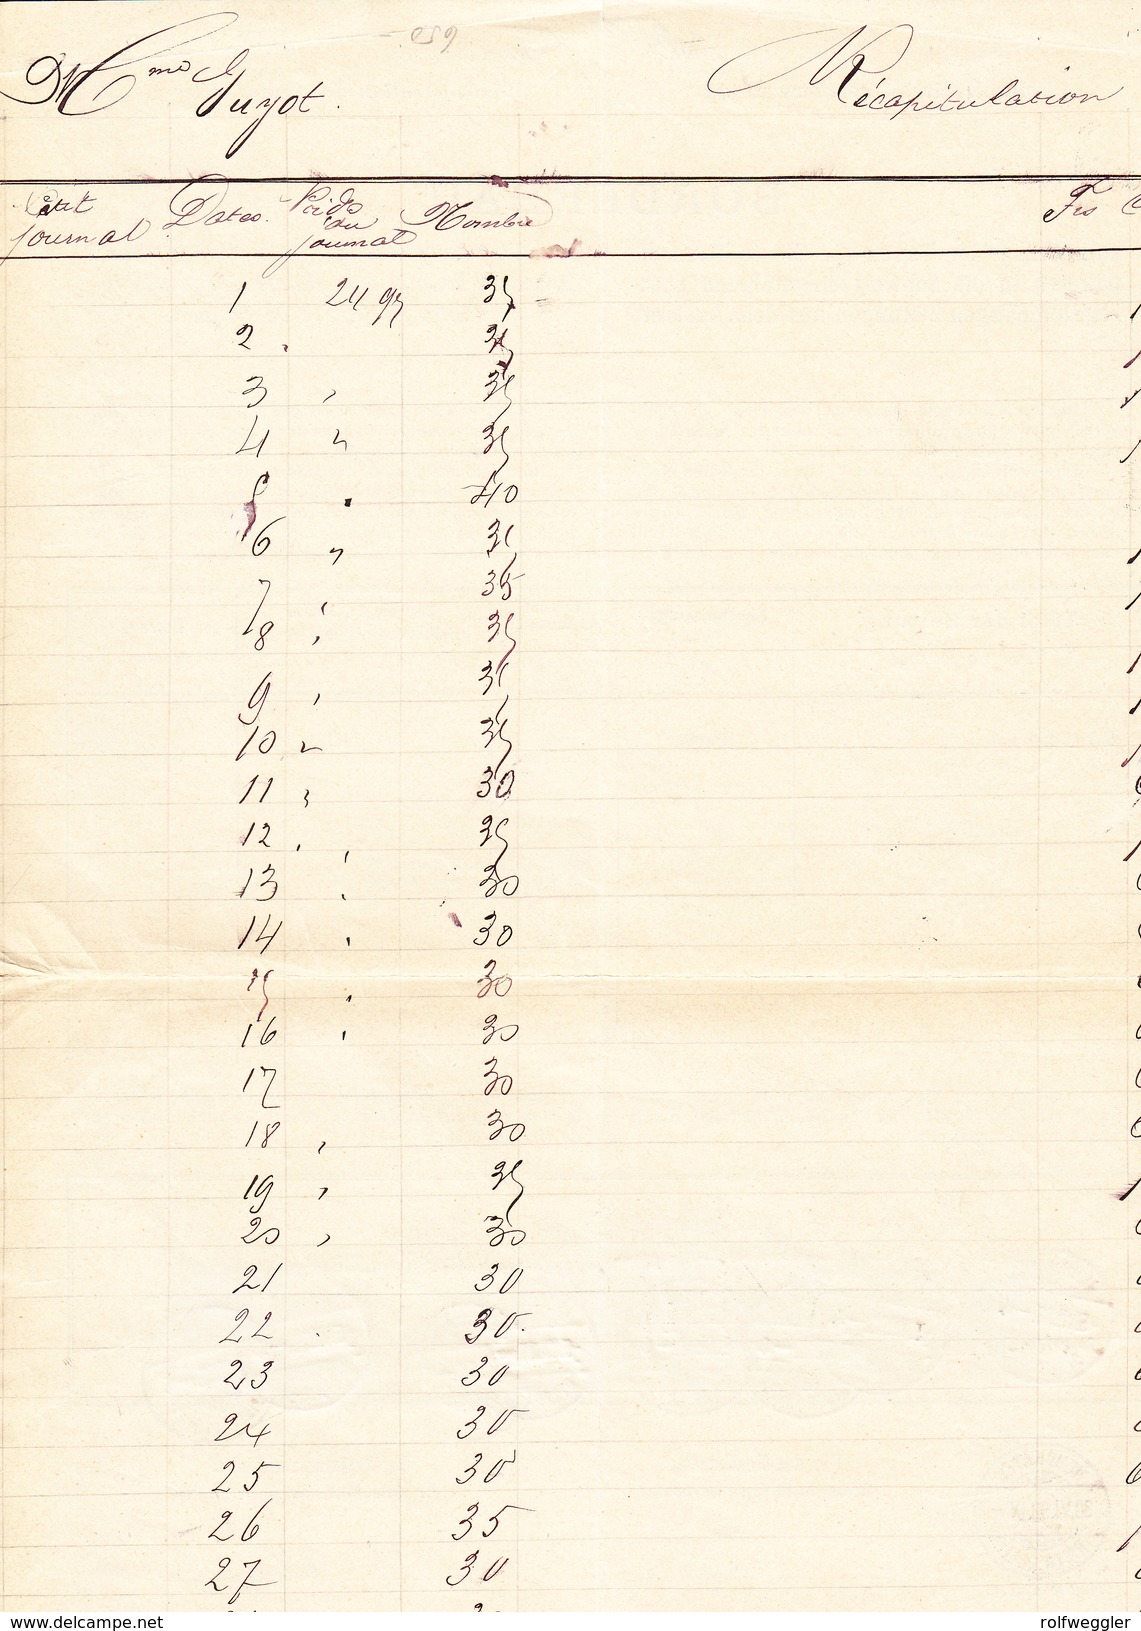 650
Mme Guyot. Récapitulation
Petit journal Dates. Poids du journal Nombre Frs C
1 24 gr 35
2 35
3 " 35
4 " 35
5 " 40
6 " 35
7 " 35
8 " 35
9 " 35
10 " 35
11 " 30
12 " 35
13 " 30
14 " 30
15 " 30
16 " 30
17 30
18 " 30
19 " 35
20 " 30
21 30
22 30.
23 30
24 30
25 30
26 35
27 30
www.delcampe.net rolfweggler